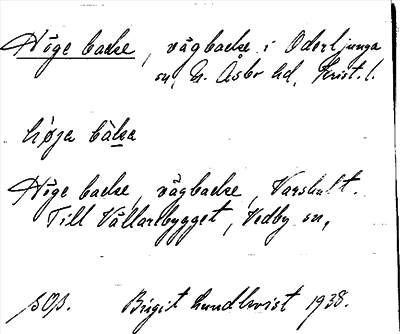 Höge backe, vägbacke i Oderljunga
sn, N. Åsbo hd, Krist. l.
høja bàka
Höge backe, vägbacke, Varshult.
Till Vållarebygget, Vedby sn,
Birgit Lundkvist 1938.